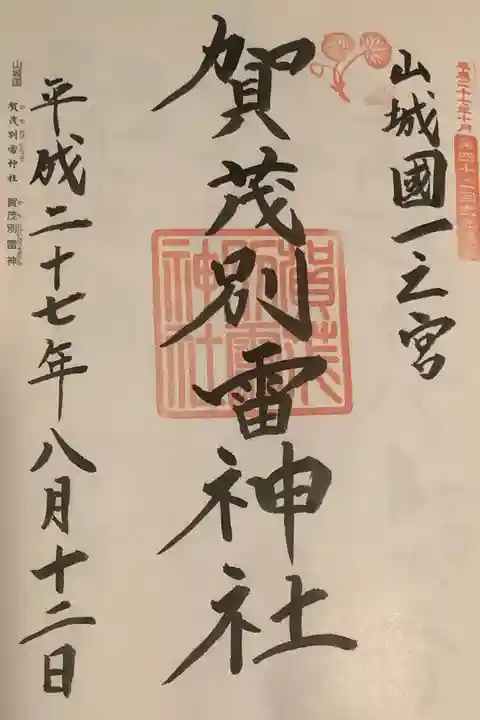 平成二十七年十月
山城國一之宮
賀茂別雷神社
賀茂別雷神社
平成二十七年八月十二日
山城国 賀茂別雷神社 賀茂別雷神